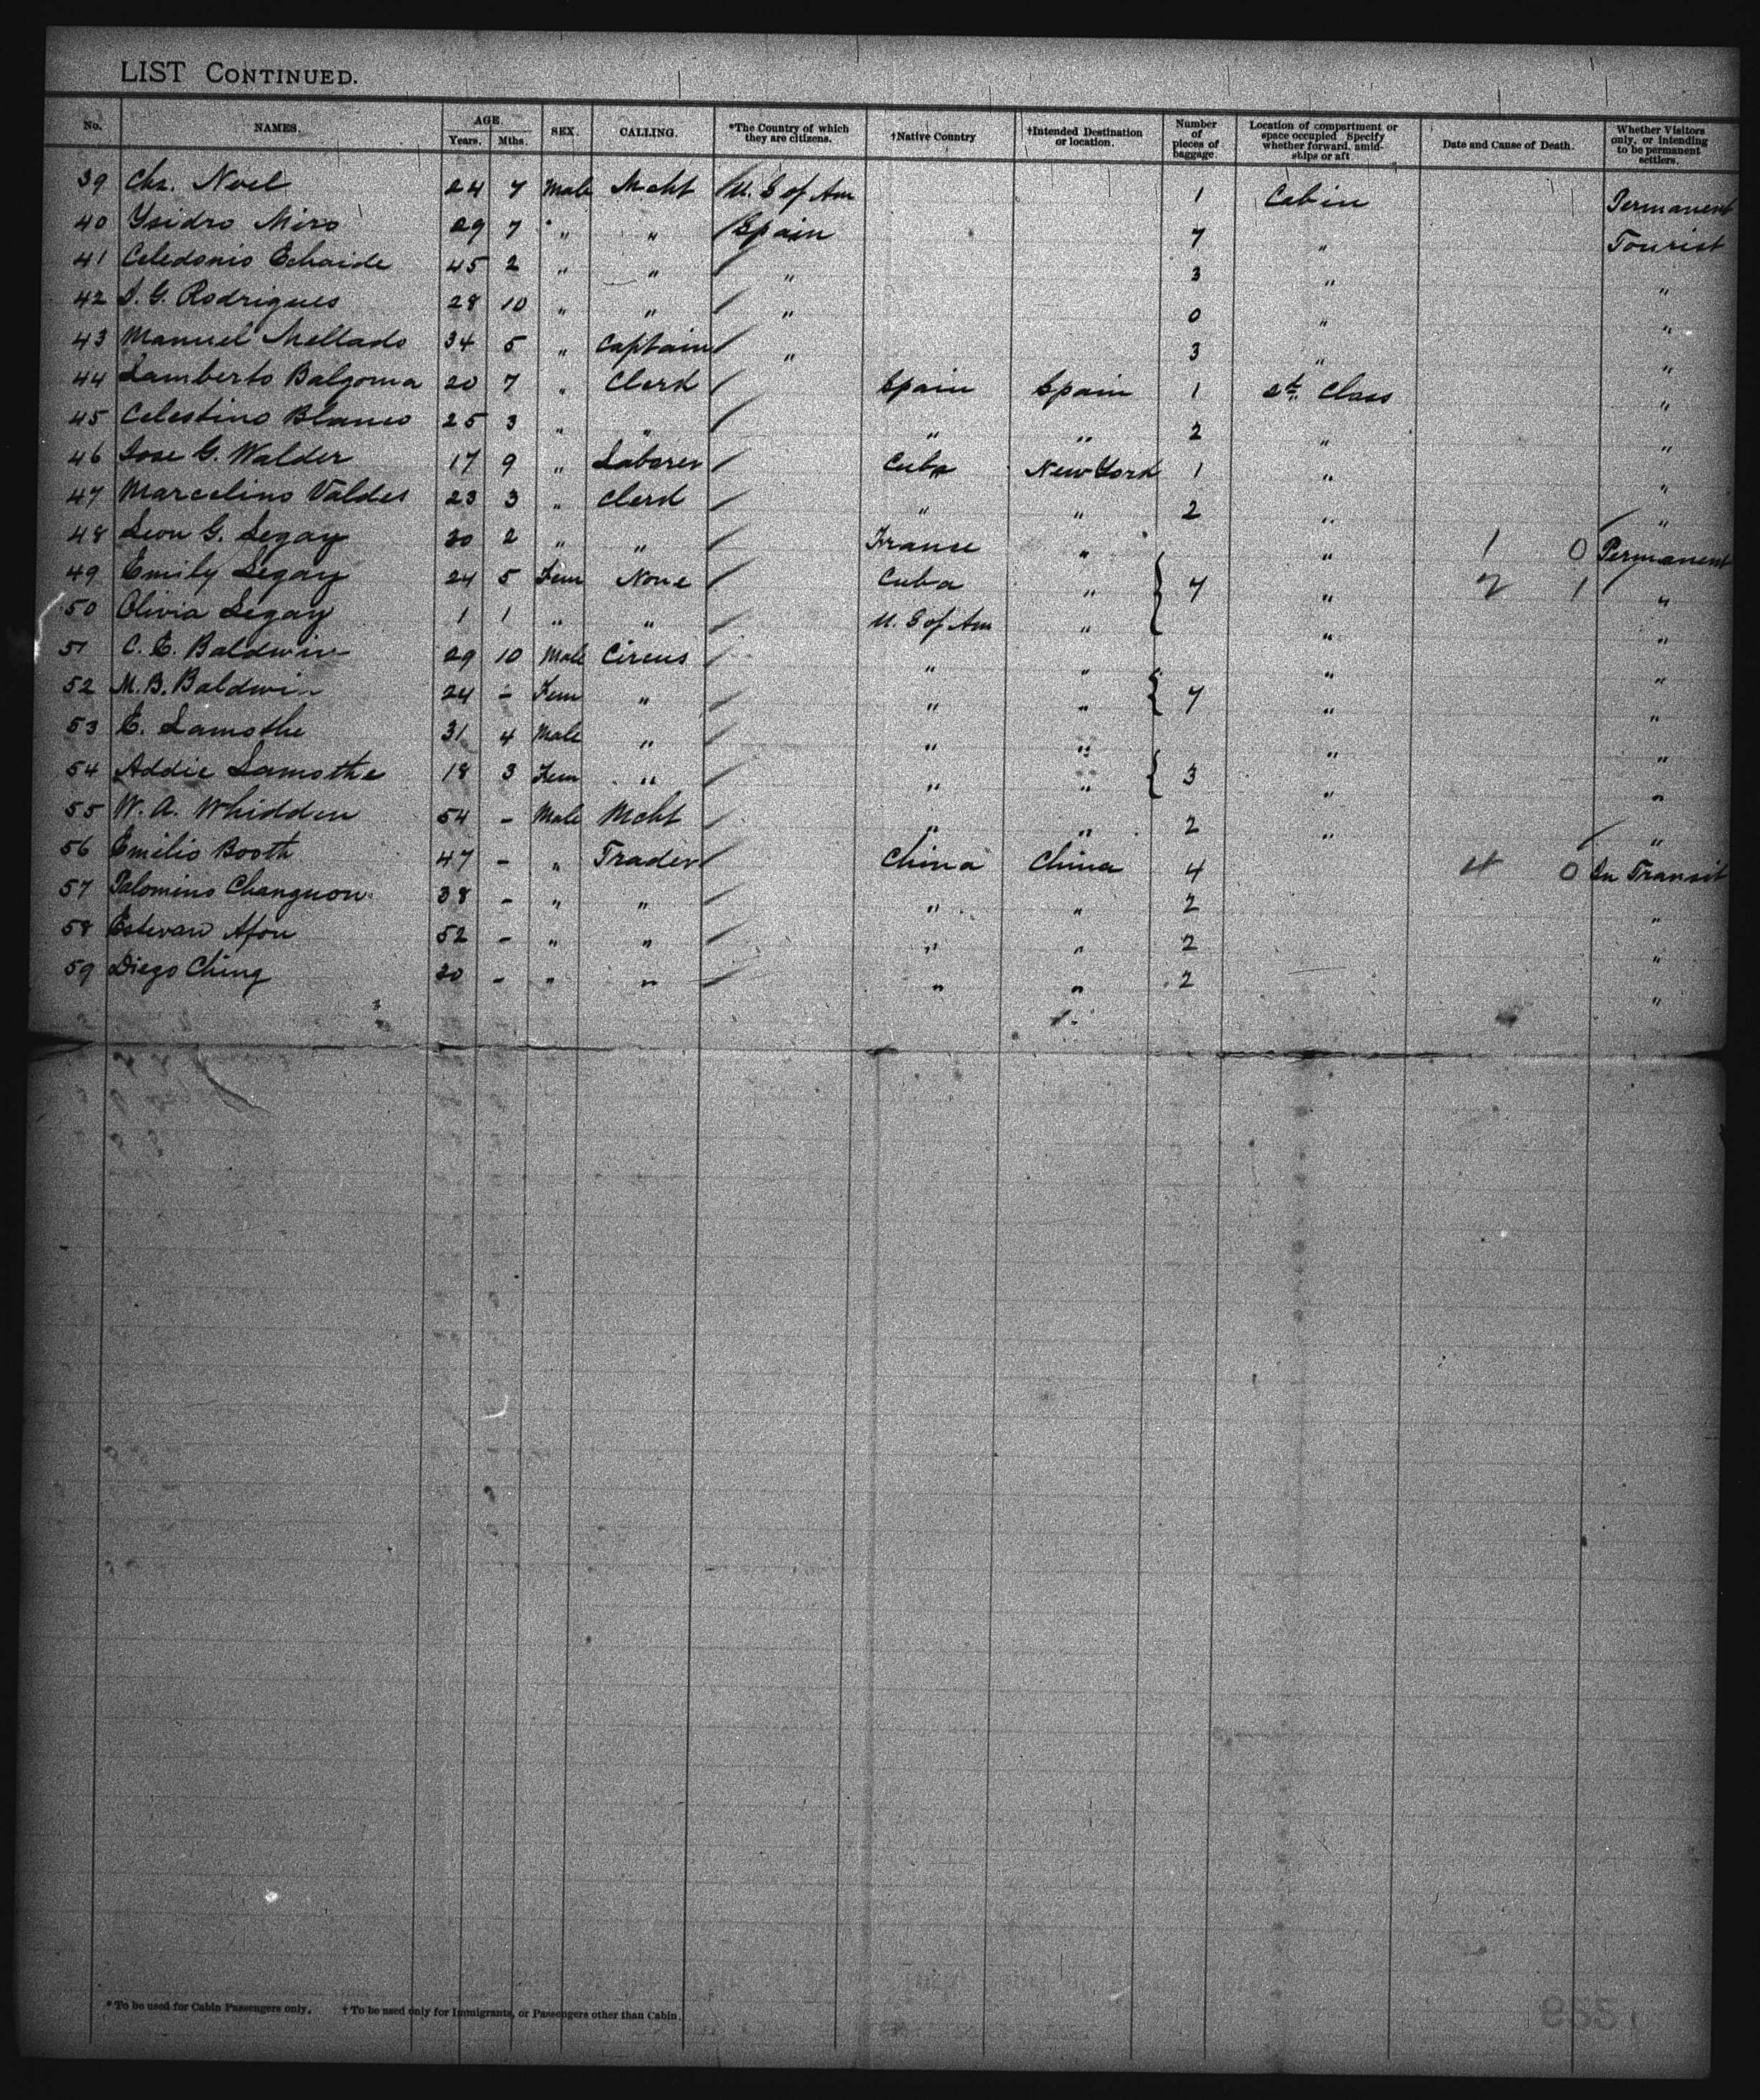 LIST CONTINUED.
No. NAMES. AGE. Years. Mths. SEX. CALLING. *The Country of which they are citizens. †Native Country †Intended Destination or location. Number of pieces of baggage. Location of compartment or space occupied Specify whether forward, amid-ships or aft Date and Cause of Death. Whether Visitors only, or intending to be permanent settlers.
39 Chs. Noel 24 7 Male Mcht / U. S of Am 1 Cabin Permanent
40 Ysidro Miro 29 7 " " / Spain 7 " Tourist
41 Celedonio Echaide 45 2 " " / " 3 " "
42 S. G. Rodrigues 28 10 " " / " 0 " "
43 Manuel Mellado 34 5 " Captain / " 3 " "
44 Lamberto Balgoma 20 7 " Clerk / Spain Spain 1 2d. Class "
45 Celestino Blanco 25 3 " " / " " 2 " "
46 Jose G. Walder 17 9 " Laborer / Cuba New York 1 " "
47 Marcelino Valdes 23 3 " Clerk / " " 2 " "
48 Leon G. Legay 30 2 " " / France " " 1 0 Permanent
49 Emily Legay 24 5 Fem None / Cuba " 7 " 2 1 "
50 Olivia Legay 1 1 " " / U. S of Am " " "
51 C. E. Baldwin 29 10 Male Circus / " " " "
52 M. B. Baldwin 24 - Fem " / " " 7 " "
53 E. Lamothe 31 4 Male " / " " " "
54 Addie Lamothe 18 3 Fem " / " " 3 " "
55 W. A. Whidden 54 - Male Mcht / " " 2 " "
56 Emilio Booth 47 - " Trader / China China 4 4 0 In Transit
57 Palomino Changuon 38 - " " / " " 2 "
58 Estevan Afon 52 - " " / " " 2 "
59 Diego Ching 30 - " " / " " 2 "
* To be used for Cabin Passengers only. † To be used only for Immigrants, or Passengers other than Cabin.